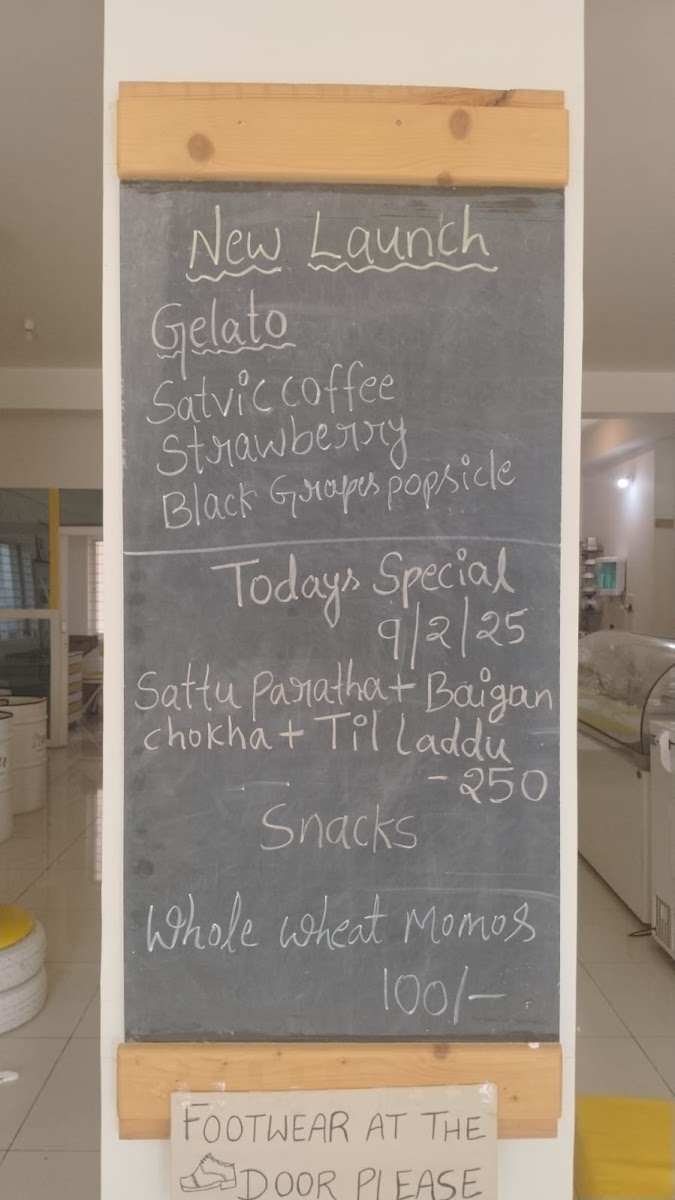 New Launch
Gelato
Satvic coffee
Strawberry
Black Grapes popsicle
Todays Special
9/2/25
Sattu Paratha + Baigan
chokha + Til Laddu
- 250
Snacks
Whole wheat Momos
100/-
FOOTWEAR AT THE
DOOR PLEASE